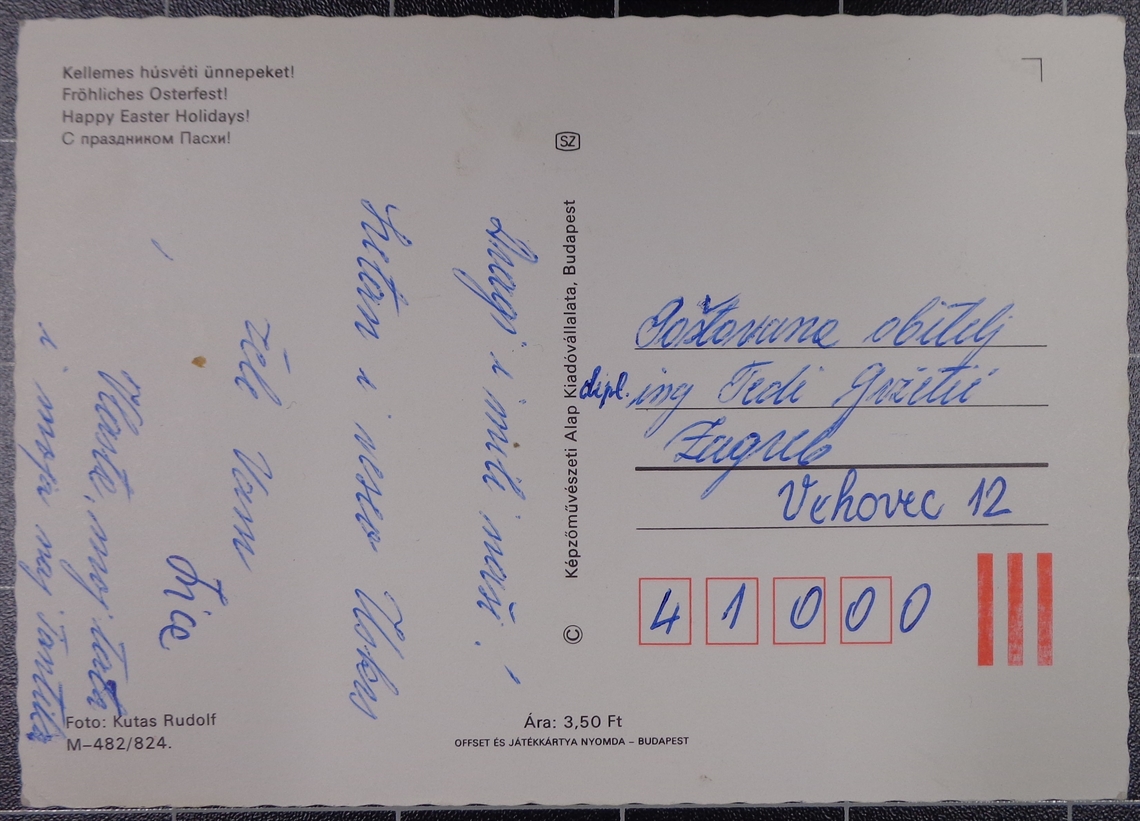 Kellemes húsvéti ünnepeket!
Fröhliches Osterfest!
Happy Easter Holidays!
С праздником Пасхи!
SZ
Dragi i mili naši!
Sretan i veseo Uskrs
žele Vam
Vlasta, moj tata
i moja
Képzőművészeti Alap Kiadóvállalata, Budapest
©
Poštovana obitelj
dipl. ing Fedi
Zagreb
Vrhovec 12
41000
Foto: Kutas Rudolf
M–482/824.
Ára: 3,50 Ft
OFFSET ÉS JÁTÉKKÁRTYA NYOMDA – BUDAPEST